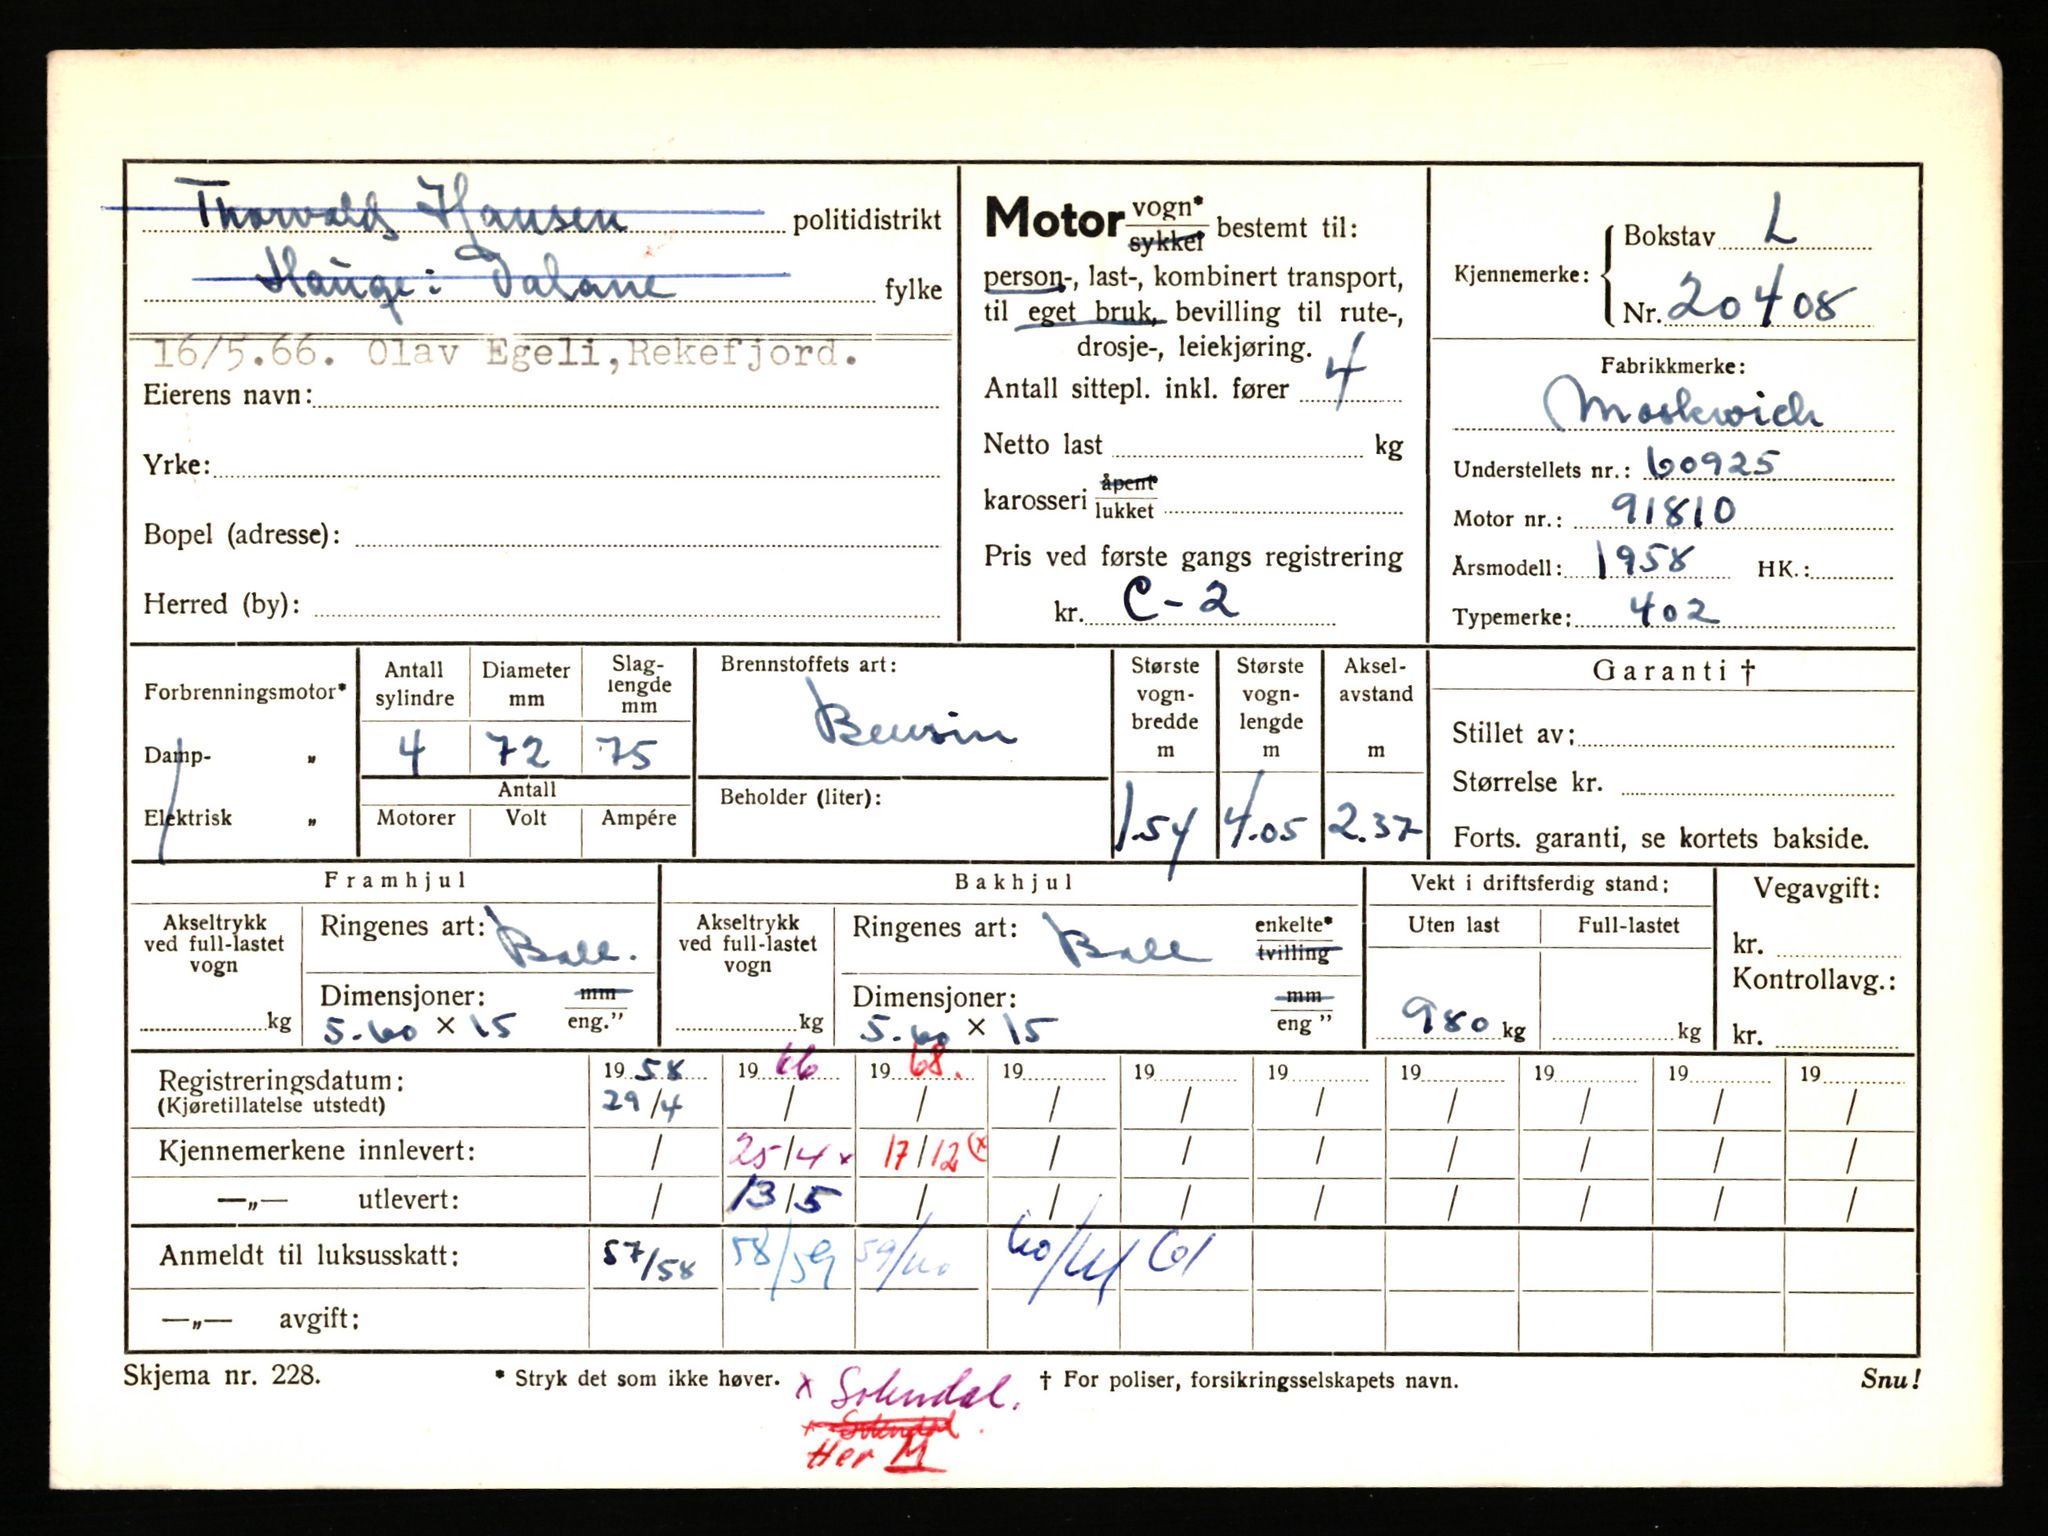 Thorvald Hansen politidistrikt
Hauge i Dalane fylke
16/5.66. Olav Egeli, Rekefjord.
Eierens navn:
Yrke:
Bopel (adresse):
Herred (by):
Motor vogn* sykkel bestemt til:
person-, last-, kombinert transport,
til eget bruk, bevilling til rute-,
drosje-, leiekjøring.
Antall sittepl. inkl. fører 4
Netto last kg
karosseri åpent* lukket
Pris ved første gangs registrering
kr. C-2
Kjennemerke: Bokstav L
Nr. 20408
Fabrikkmerke:
Moskwich
Understellets nr.: 60925
Motor nr.: 91810
Årsmodell: 1958 HK.:
Typemerke: 402
Forbrenningsmotor*
Damp- „
Elektrisk „
Antall sylindre 4
Diameter mm 72
Slaglengde mm 75
Antall
Motorer Volt Ampére
Brennstoffets art:
Bensin
Beholder (liter):
Største vogn-bredde m 1.54
Største vogn-lengde m 4.05
Aksel-avstand m 2.37
Garanti †
Stillet av:
Størrelse kr.
Forts. garanti, se kortets bakside.
Framhjul
Akseltrykk ved full-lastet vogn kg
Ringenes art: Ball.
Dimensjoner: mm eng."
5.60 × 15
Bakhjul
Akseltrykk ved full-lastet vogn kg
Ringenes art: Ball enkelte* tvilling
Dimensjoner: mm eng "
5.60 × 15
Vekt i driftsferdig stand:
Uten last Full-lastet
980 kg kg
Vegavgift:
kr.
Kontrollavg.:
kr.
Registreringsdatum: 19 58 19 66 19 68. 19 19 19 19 19 19 19
(Kjøretillatelse utstedt) 29/4 / / / / / / / / /
Kjennemerkene innlevert: / 25/4 x 17/12 (x / / / / / / /
—„— utlevert: / 13/5 / / / / / / / /
Anmeldt til luksusskatt: 57/58 58/59 59/60 60/61 61
—„— avgift:
Skjema nr. 228. * Stryk det som ikke høver. † For poliser, forsikringsselskapets navn. Snu!
x Solendal.
x Solendal.
Her M